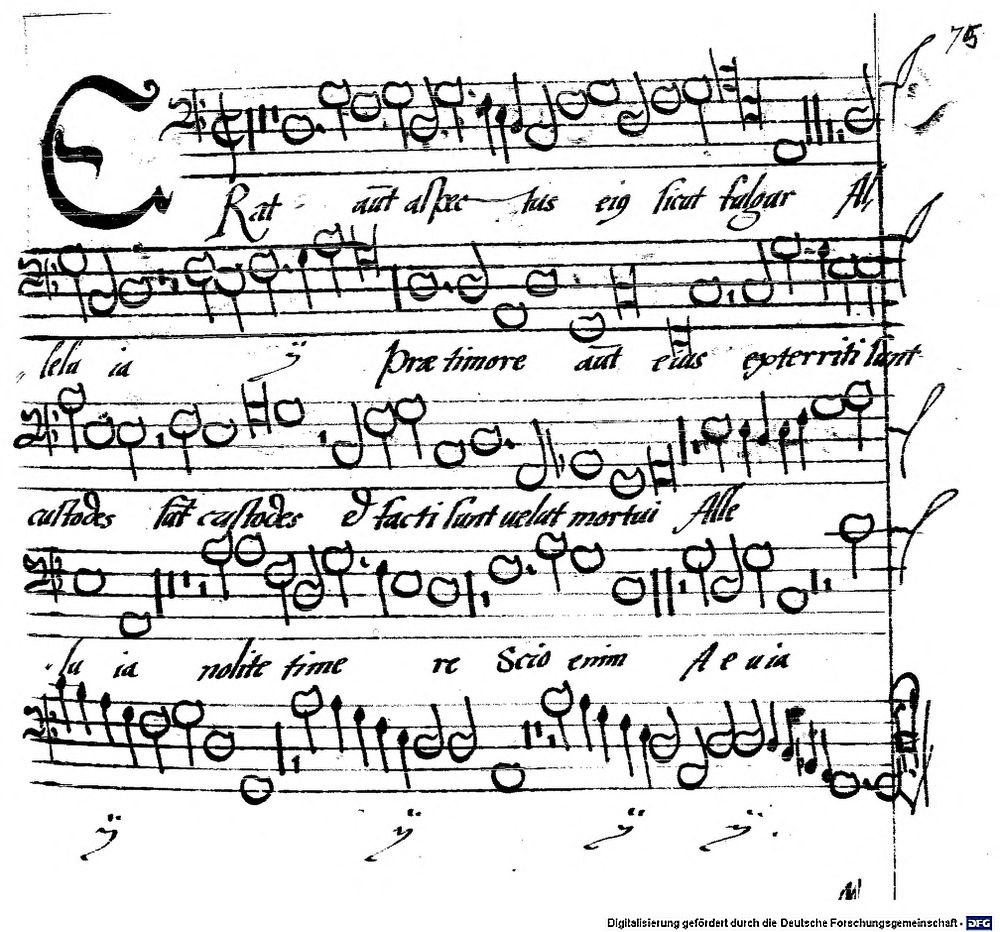 75
ERat aūt aspec tus eiꝯ sicut fulgur Al,
lelu ia ij Præ timore aūt eius exterriti sunt
custodes sūt custodes & facti sunt uelut mortui Alle
lu ia nolite time re Scio enim A e u ia
ij ij ij ij
Digitalisierung gefördert durch die Deutsche Forschungsgemeinschaft - DFG